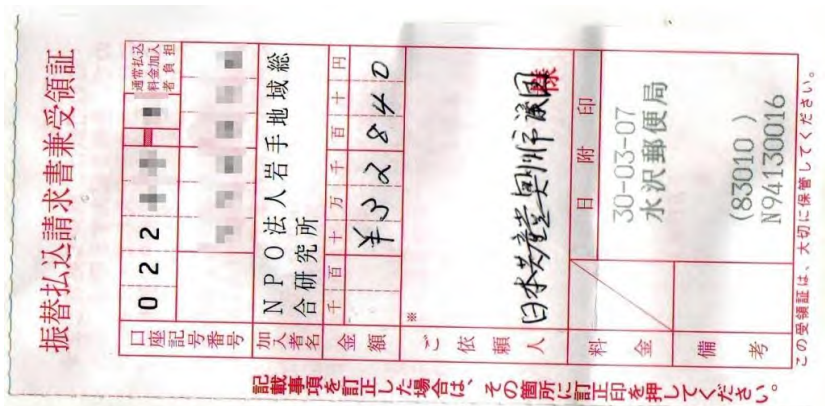 振替払込請求書兼受領証
通常払込
料金加入
者負担
口座記号番号
022
加入者名
NPO法人岩手地域総
合研究所
金額
千百十万千百十円
¥32840
ご依頼人
※
日本共産党奥州市議団
様
料金
日附印
30-03-07
水沢郵便局
備考
(83010 )
N94130016
この受領証は、大切に保管してください。
記載事項を訂正した場合は、その箇所に訂正印を押してください。